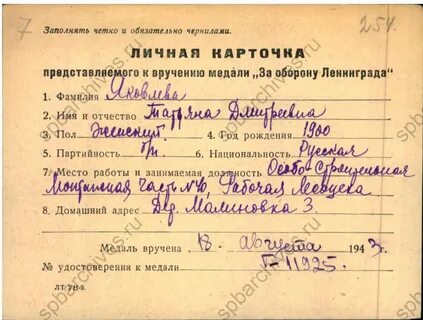 7
Заполнять четко и обязательно чернилами. 254.
ЛИЧНАЯ КАРТОЧКА
представляемого к вручению медали „За оборону Ленинграда"
1. Фамилия Яковлева
2. Имя и отчество Татьяна Дмитревна
3. Пол Женский 4. Год рождения 1900
5. Партийность б/п. 6. Национальность Русская
7. Место работы и занимаемая должность Особо-Строительная
Монтажная Часть №40, Рабочая
8. Домашний адрес Дер. Малиновка 3
Медаль вручена 18 августа 1943 г.
№ удостоверения к медали Г-11925.
ЛТ УН-9.
spbarchives.ru